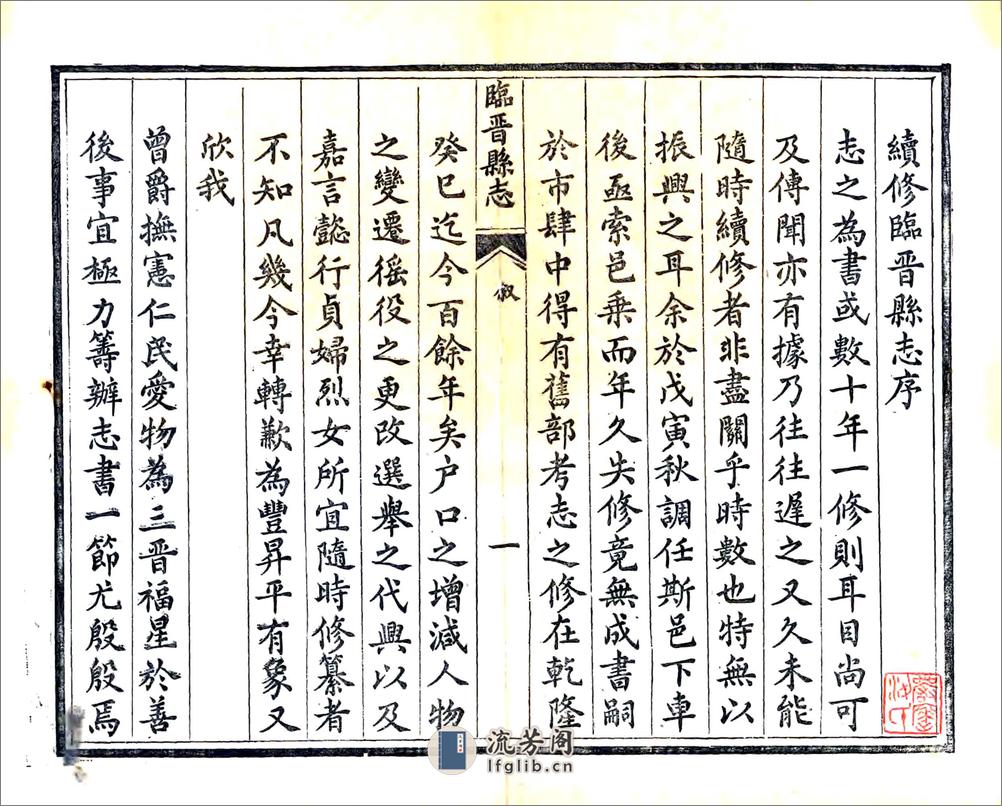 續修臨晉縣志序
志之為書或數十年一修則耳目尚可
及傳聞亦有據乃往往遲之又久未能
隨時續修者非盡關乎時數也特無以
振興之耳余於戊寅秋調任斯邑下車
後亟索邑乘而年久失修竟無成書嗣
於市肆中得有舊部考志之修在乾隆
臨晉縣志
敘
一
癸巳迄今百餘年矣户口之增減人物
之變遷徭役之更改選舉之代興以及
嘉言懿行貞婦烈女所宜隨時修纂者
不知凡幾今幸轉歉為豐昇平有象又
欣我
曾爵撫憲仁民愛物為三晉福星於善
後事宜極力籌辦志書一節尤殷殷焉
流芳阁
lfglib.cn